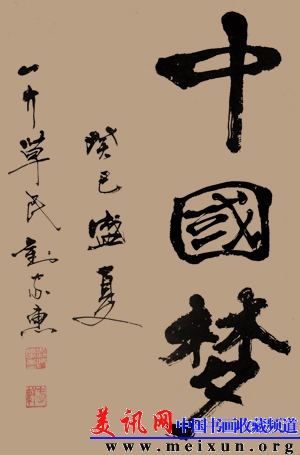 中國梦
癸巳盛夏
一介草民
美讯网 中国书画收藏频道
www.meixun.org